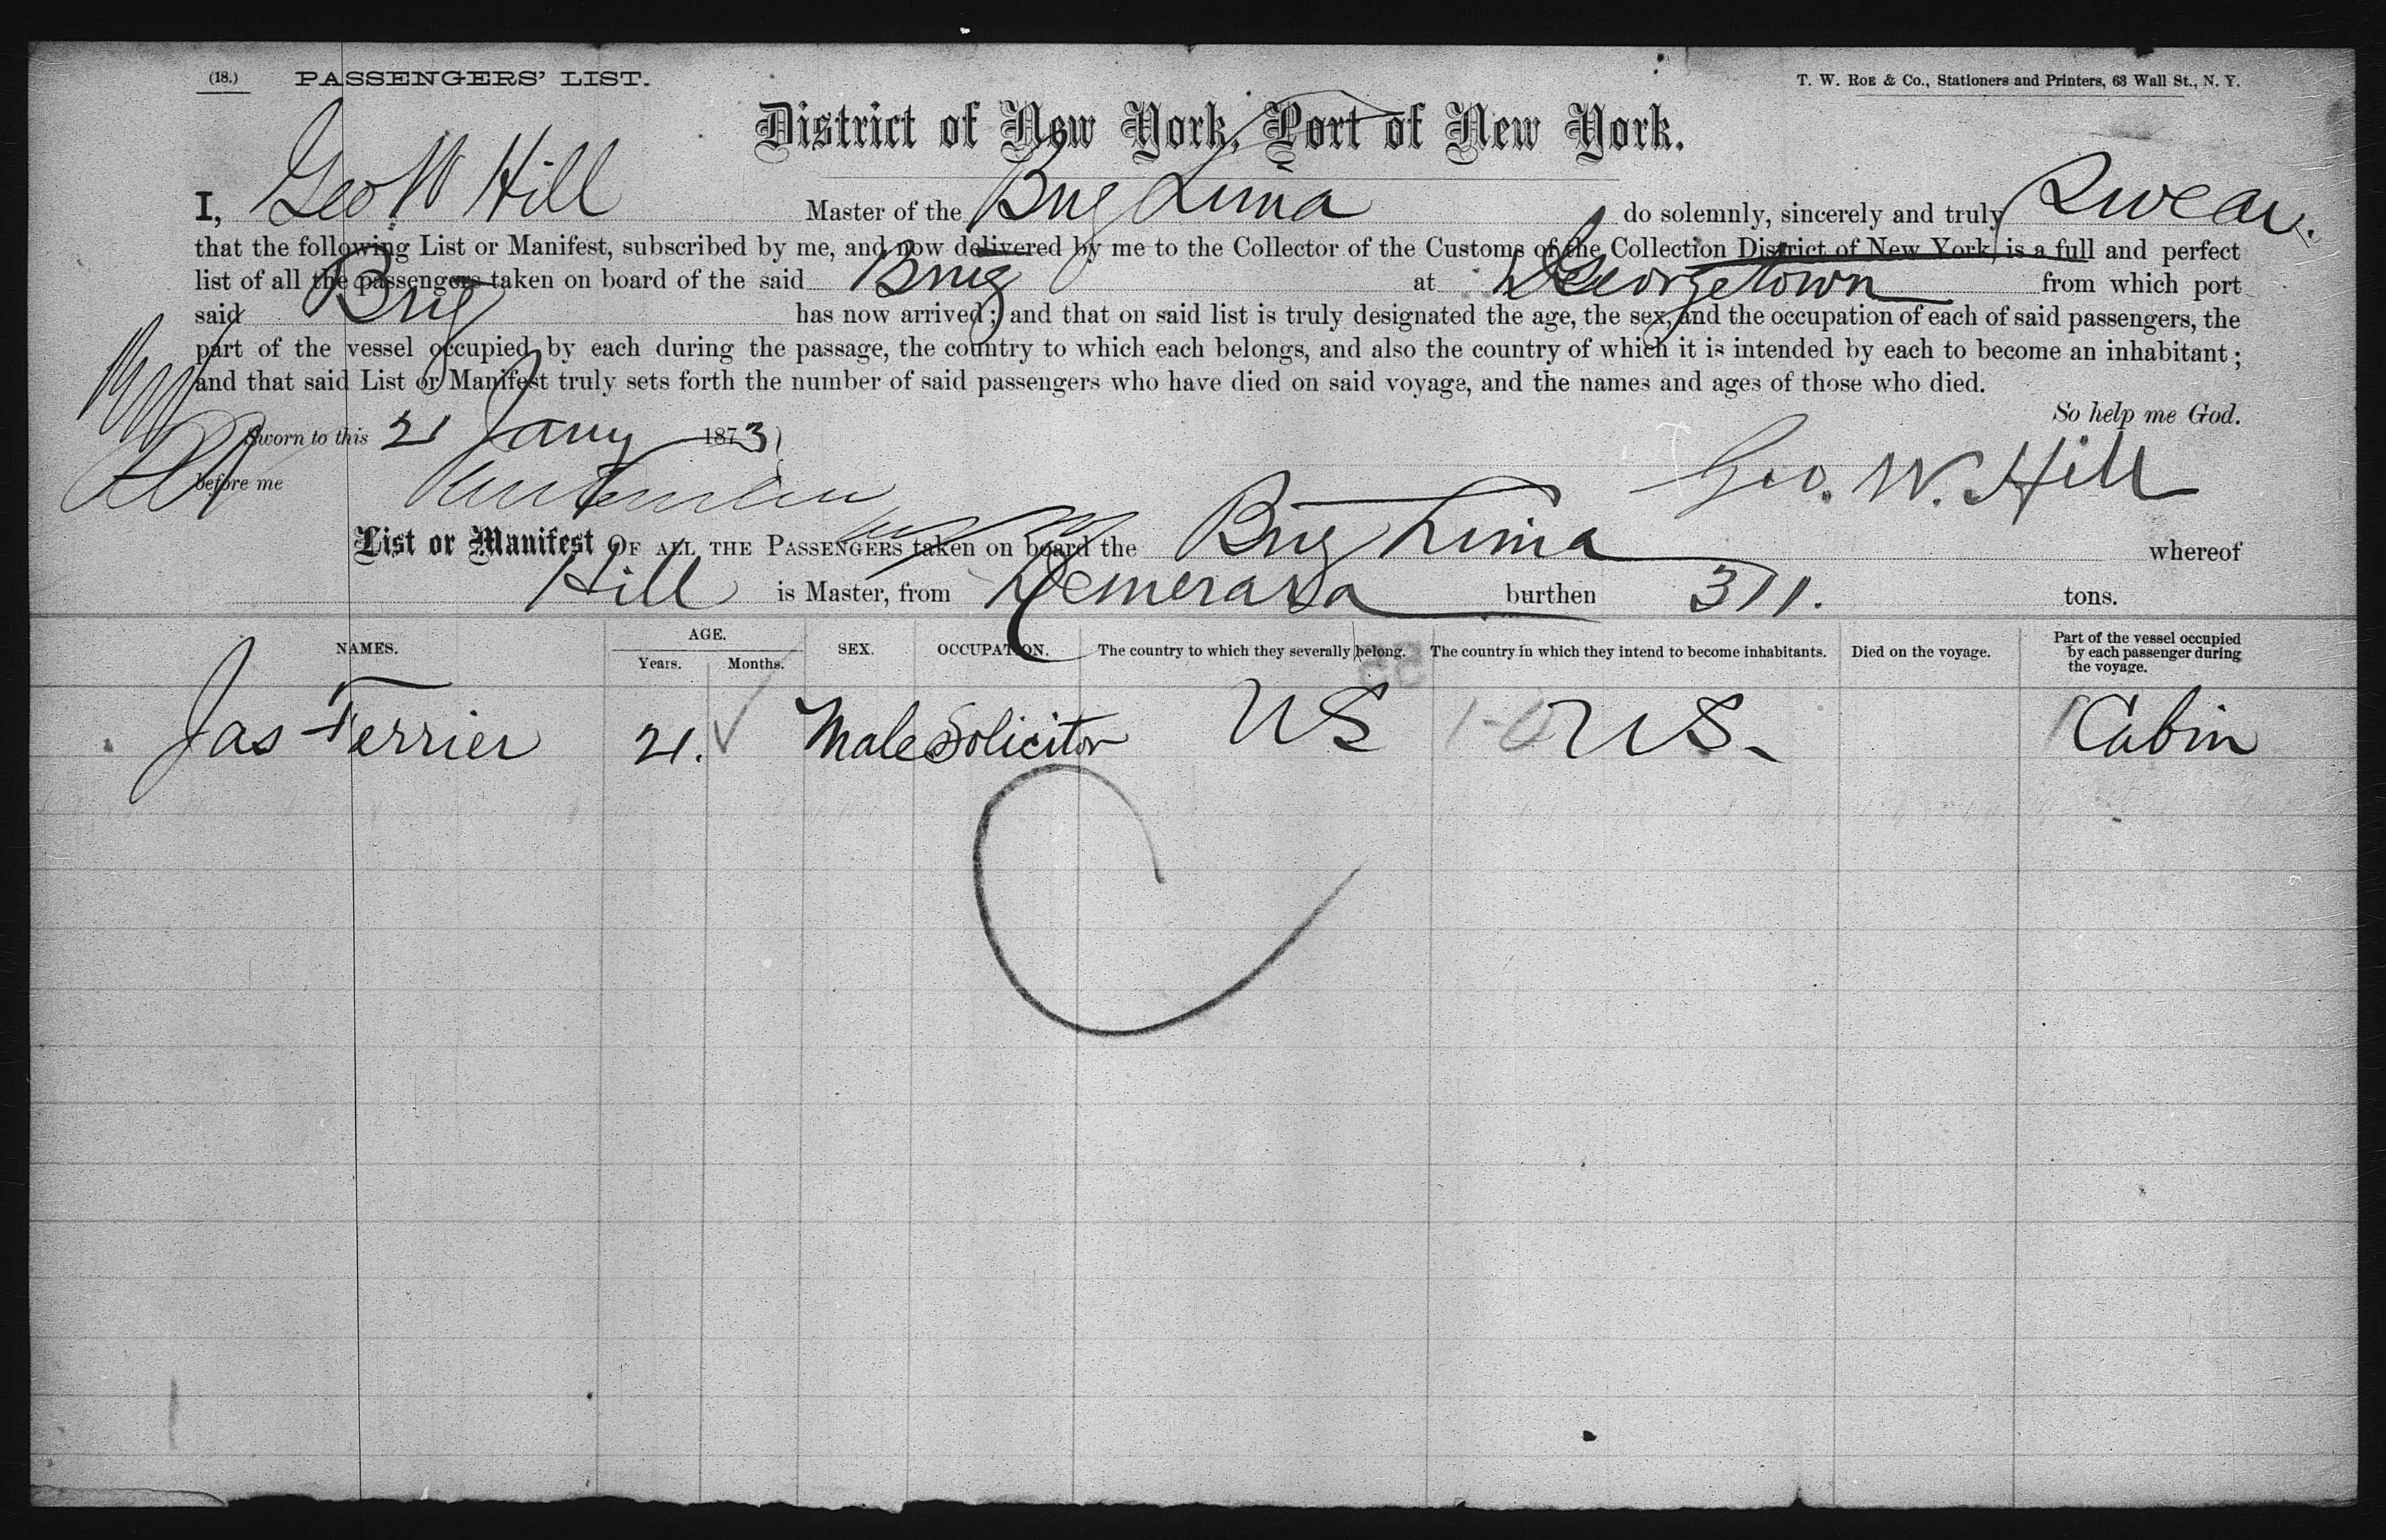 (18.) PASSENGERS' LIST.
T. W. ROE & Co., Stationers and Printers, 63 Wall St., N. Y.
District of New York, Port of New York.
I, Geo W Hill Master of the Brig Lima do solemnly, sincerely and truly Swear
that the following List or Manifest, subscribed by me, and now delivered by me to the Collector of the Customs of the Collection District of New York, is a full and perfect
list of all the passengers taken on board of the said Brig at Georgetown from which port
said Brig has now arrived; and that on said list is truly designated the age, the sex, and the occupation of each of said passengers, the
part of the vessel occupied by each during the passage, the country to which each belongs, and also the country of which it is intended by each to become an inhabitant;
and that said List or Manifest truly sets forth the number of said passengers who have died on said voyage, and the names and ages of those who died.
So help me God.
Sworn to this 21 Jany 1873
before me
Geo. W. Hill
List or Manifest OF ALL THE PASSENGERS taken on board the Brig Lima whereof
Hill is Master, from Demerara burthen 311. tons.
NAMES. AGE. Years. Months. SEX. OCCUPATION. The country to which they severally belong. The country in which they intend to become inhabitants. Died on the voyage. Part of the vessel occupied by each passenger during the voyage.
Jas Ferrier 21. Male Solicitor US US. Cabin